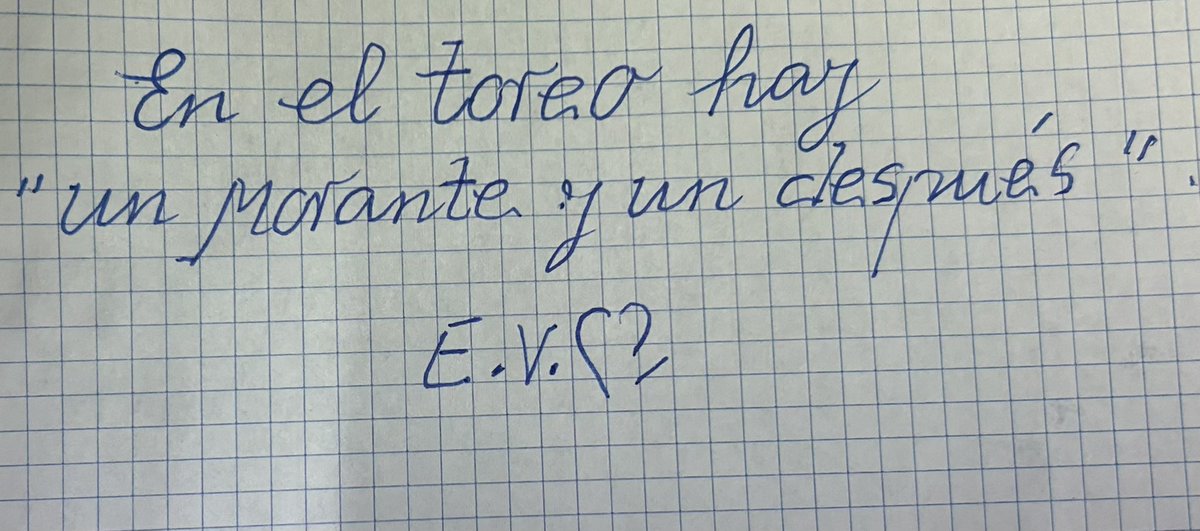 En el toreo hay
"un Morante y un después".
E.V.